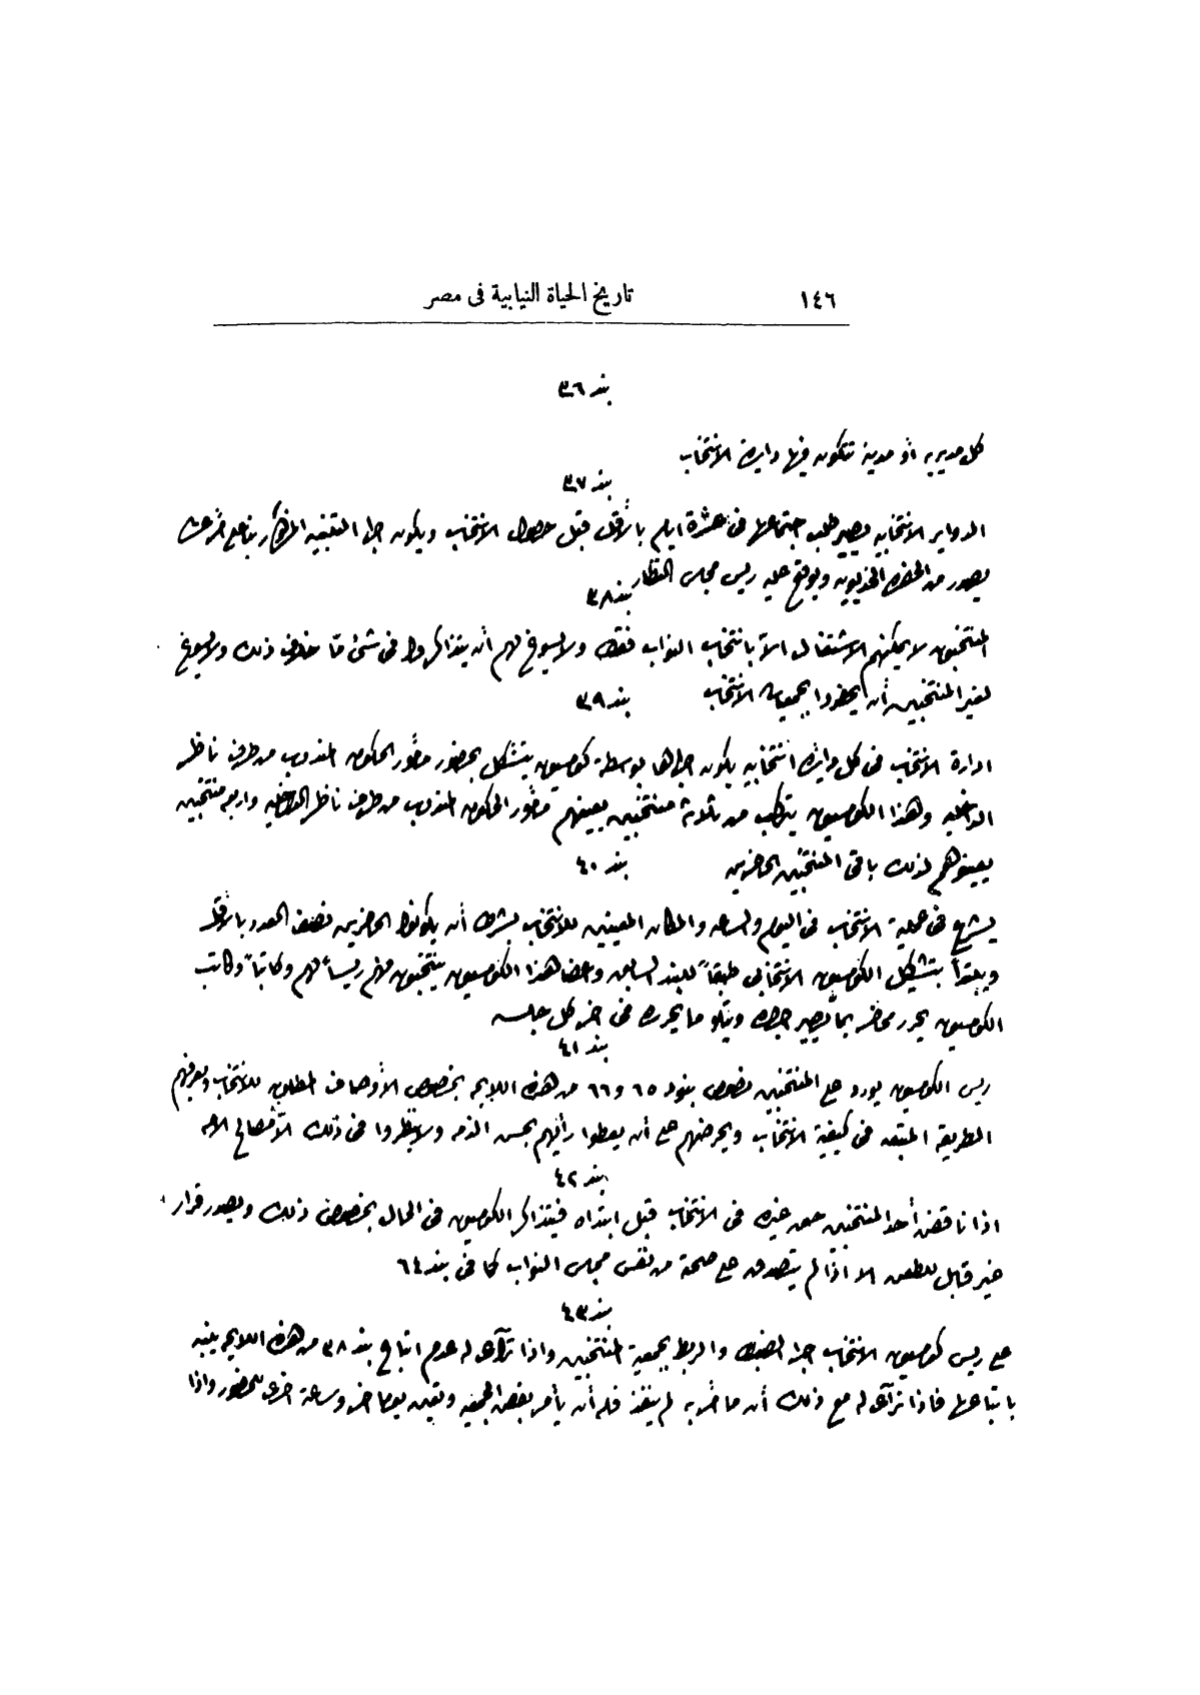 ١٤٦
تاريخ الحياة النيابية فى مصر
بند ٣٦
كل مديريه أو مدينة تتكون فيها دايرة الانتخاب
بند ٣٧
الدواير الانتخابيه يصير طلب اجتماعها فى عشرة ايام بالأقل قبل حصول الانتخاب ويكون اجرا التنبيه بناء على أمر
يصدر من الحضرة الخديوية ويوقع عليه ريس مجلس النظار
بند ٣٨
المنتخبون لا يمكنهم الاشتغال الا بانتخاب النواب فقط ولا يسوغ لهم أن يتذاكروا فى شئ ما خلاف ذلك ولا يسوغ
لغير المنتخبين أن يحضروا بجمعيات الانتخاب
بند ٣٩
ادارة الانتخاب فى كل دايرة انتخابيه يكون اجراها بوسطة كومسيون يتشكل بحضور مأمور الحكومه المندوب من طرف ناظر
الداخليه وهذا الكومسيون يتركب من ثلاثة منتخبين يعينهم مأمور الحكومه المندوب من طرف ناظر الداخليه واربعه منتخبين
يعينوهم لذلك باقى المنتخبين الحاضرين
بند ٤٠
يشرع فى عملية الانتخاب فى اليوم والساعه والمكان المعينين للانتخاب بشرط أن يكونوا الحاضرين نصف العدد بالأقل
ويبتدأ بتشكيل الكومسيون الانتخابى طبقاً للبند السابق واعضا هذا الكومسيون ينتخبون منهم ريساً لهم وكاتباً وكاتب
الكومسيون يحرر محاضر بما يصير اجراه ويتلو ما يحرره فى اخر كل جلسه
بند ٤١
ريس الكومسيون يورد على المنتخبين نصوص بنود ٦٥ و ٦٦ من هذه اللايحه بخصوص الأوصاف المطلوبه للانتخاب ويعرفهم
الطريقه المتبعه فى كيفية الانتخاب ويحرضهم على أن يعطوا رأيهم بحسن الذمه ولا ينظروا فى ذلك الا لصالح الامه
بند ٤٢
اذا ناقض أحد المنتخبين حق غيره فى الانتخاب قبل ابتداه فيتذاكر الكومسيون فى الحال بخصوص ذلك ويصدر قرار
غير قابل للطعن الا اذا لم يتصدق على صحته من نفس مجلس النواب كما فى بند ٦٤
بند ٤٣
على ريس كومسيون الانتخاب اجرا الضبط والربط بجمعية المنتخبين واذا ترآى له عدم اتباع بند ٣٨ من هذه اللايحه ينبه
باتباعها فاذا ترآى له مع ذلك أن ما أمر به لم ينفذ فله أن يأمر بفض الجمعيه ويعين يوما اخر وساعة اخرى للحضور واذا